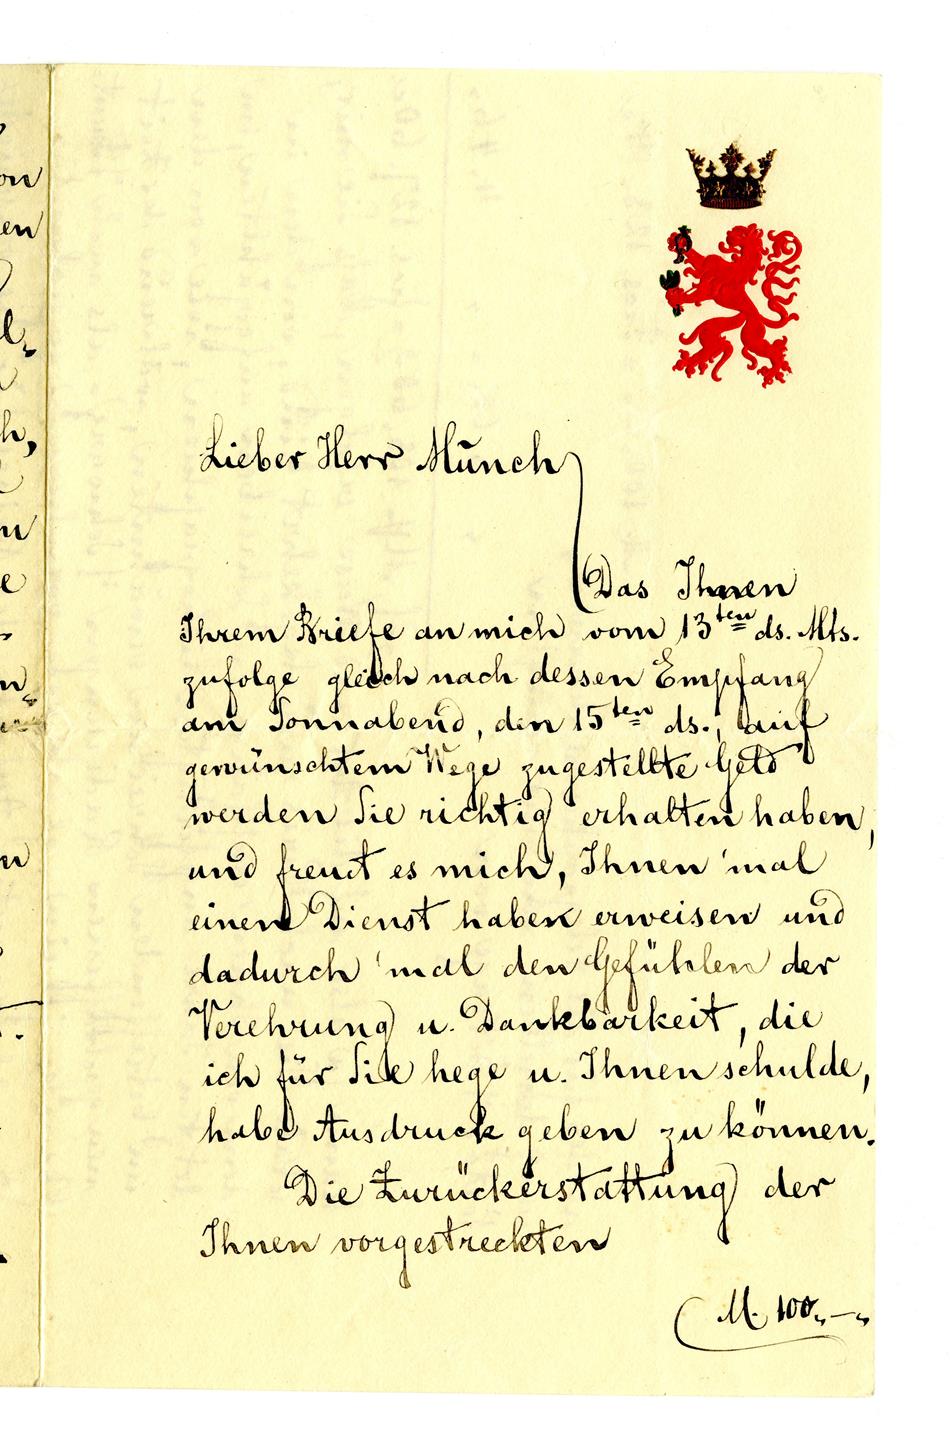 Lieber Herr Munch
Das Ihnen
Ihrem Briefe an mich vom 13ten ds. Mts.
zufolge gleich nach dessen Empfang
am Sonnabend, den 15ten ds., auf
gewünschtem Wege zugestellte Geld
werden Sie richtig erhalten haben,
und freut es mich, Ihnen 'mal
einen Dienst haben erweisen und
dadurch 'mal den Gefühlen der
Verehrung u. Dankbarkeit, die
ich für Sie hege u. Ihnen schulde,
habe Ausdruck geben zu können.
Die Zurückerstattung der
Ihnen vorgestreckten
M. 100,—,